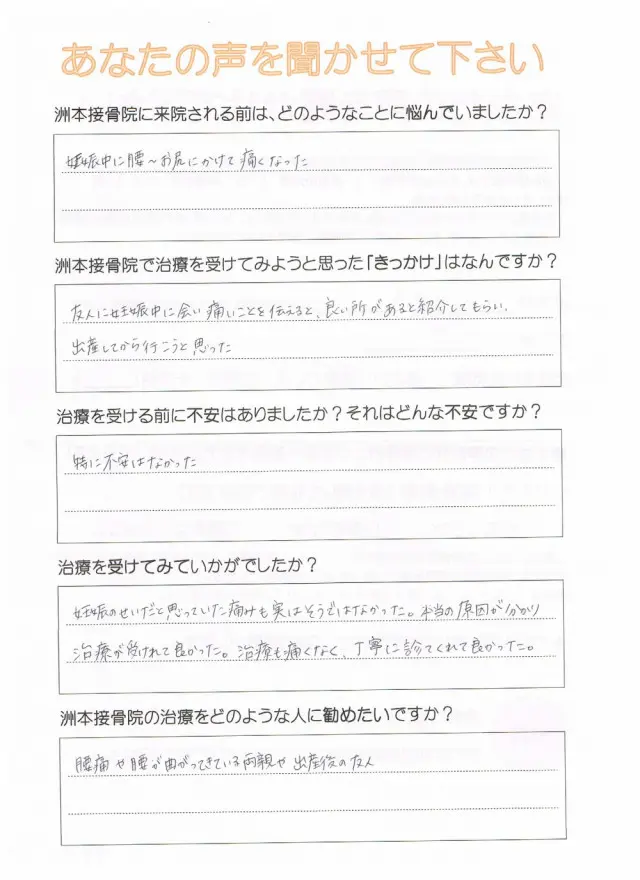 あなたの声を聞かせて下さい
洲本接骨院に来院される前は、どのようなことに悩んでいましたか？
妊娠中に腰～お尻にかけて痛くなった
洲本接骨院で治療を受けてみようと思った「きっかけ」はなんですか？
友人に妊娠中に会い痛いことを伝えると、良い所があると紹介してもらい、
出産してから行こうと思った
治療を受ける前に不安はありましたか？それはどんな不安ですか？
特に不安はなかった
治療を受けてみていかがでしたか？
妊娠のせいだと思っていた痛みも実はそうではなかった。本当の原因が分かり
治療が受けれて良かった。治療も痛くなく、丁寧に診てくれて良かった。
洲本接骨院の治療をどのような人に勧めたいですか？
腰痛や腰が曲がってきている両親や出産後の友人